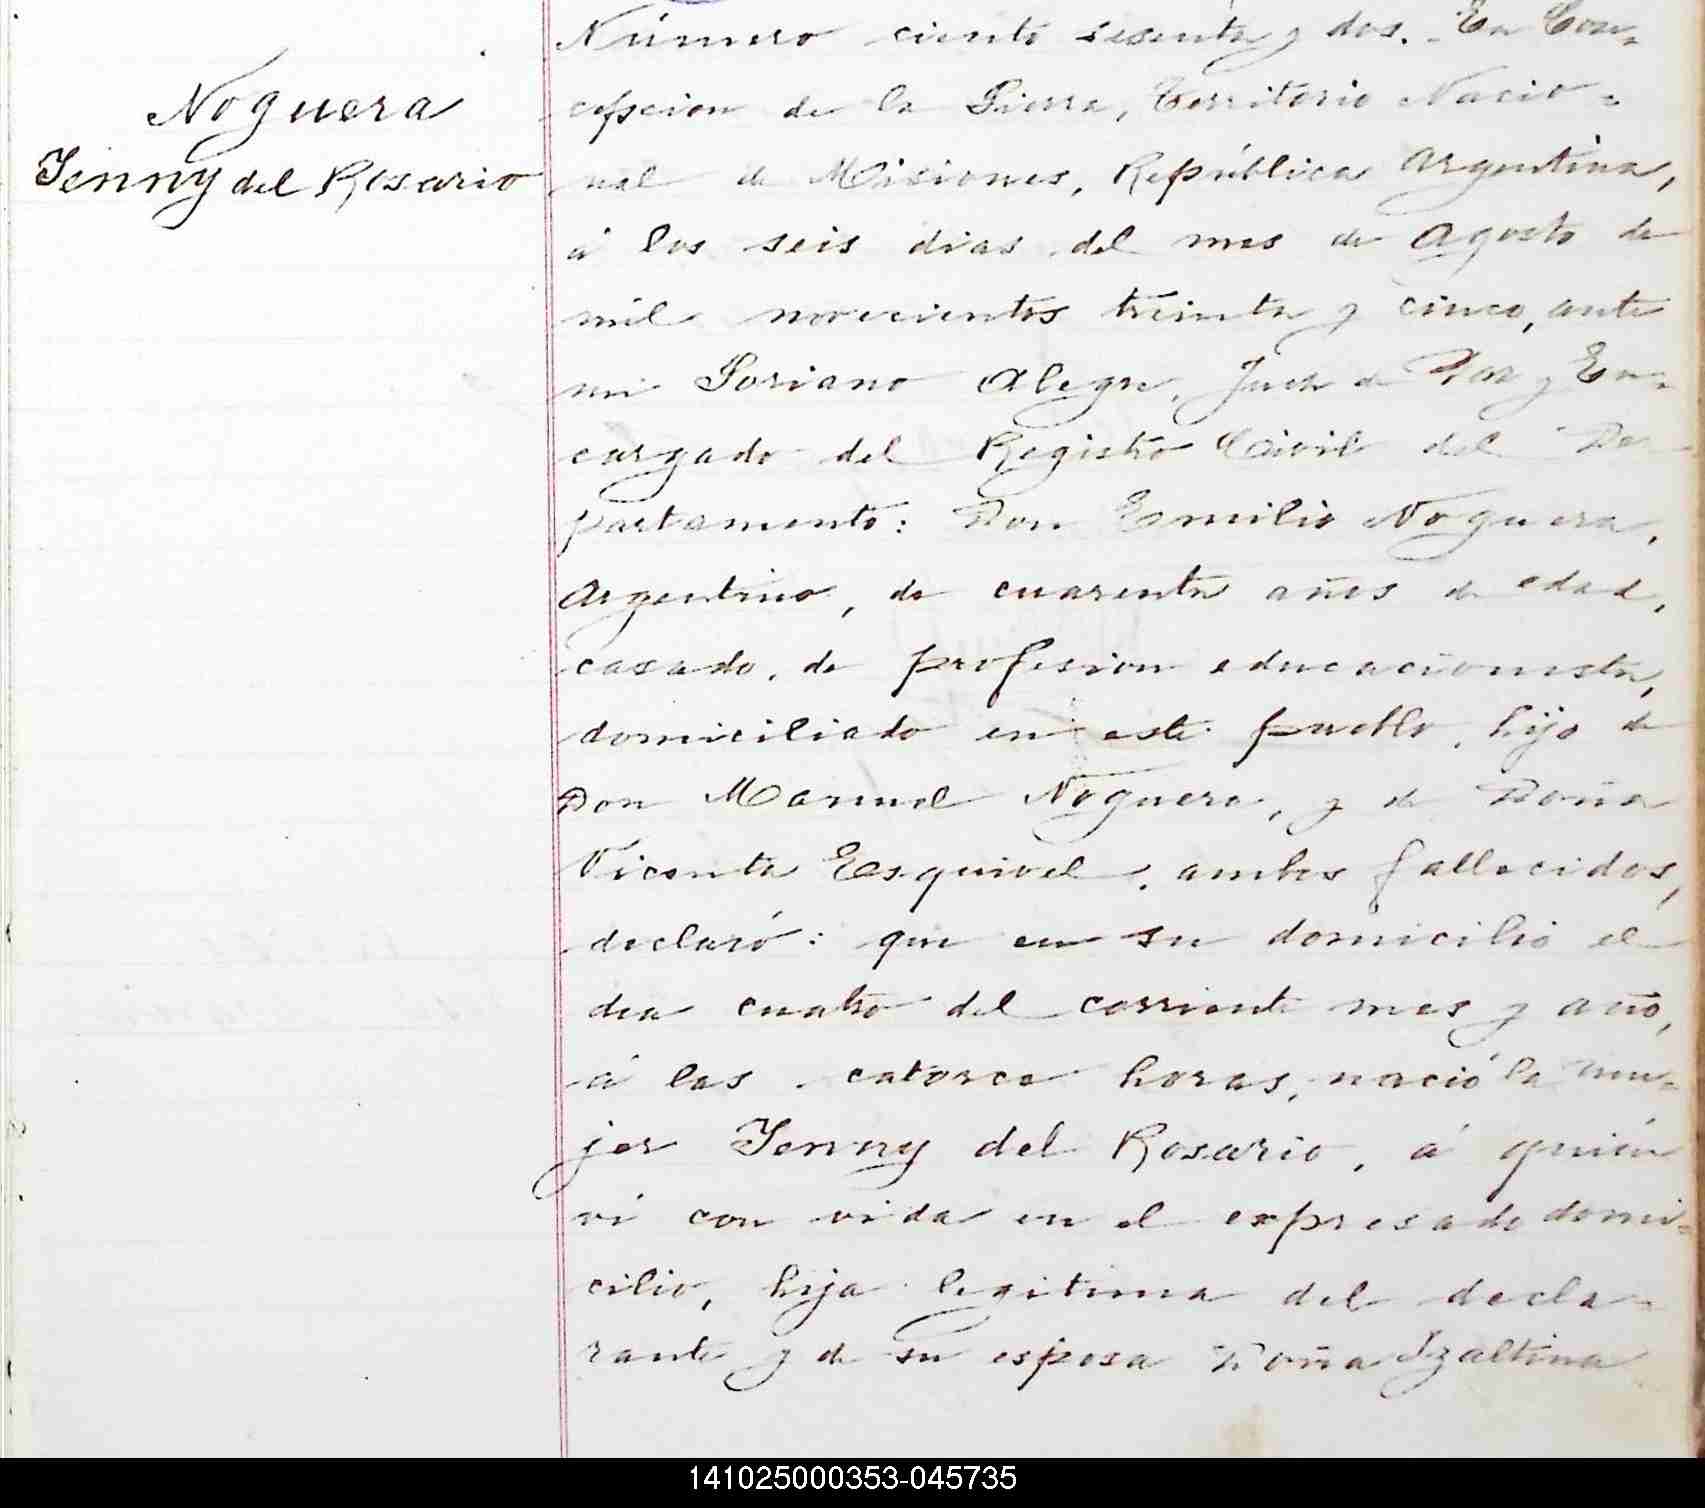 Noguera
Jenny del Rosario
Número ciento sesenta y dos. En Con-
cepcion de la Sierra, Territorio Nacio-
nal de Misiones, República Argentina,
á los seis dias del mes de Agosto de
mil novecientos treinta y cinco, ante
mi Soriano Alegre, Juez de Paz y En-
cargado del Registro Civil del De-
partamento: Don Emilio Noguera,
Argentino, de cuarenta años de edad,
casado, de profesion educacionista,
domiciliado en este pueblo, hijo de
Don Manuel Noguera, y de Doña
Vicenta Esquivel, ambos fallecidos,
declaró: que en su domicilio el
dia cuatro del corriente mes y año,
á las catorce horas, nació la mu-
jer Jenny del Rosario, á quién
ví con vida en el expresado domi-
cilio, hija legitima del decla-
rante y de su esposa Doña Izaltina
141025000353-045735